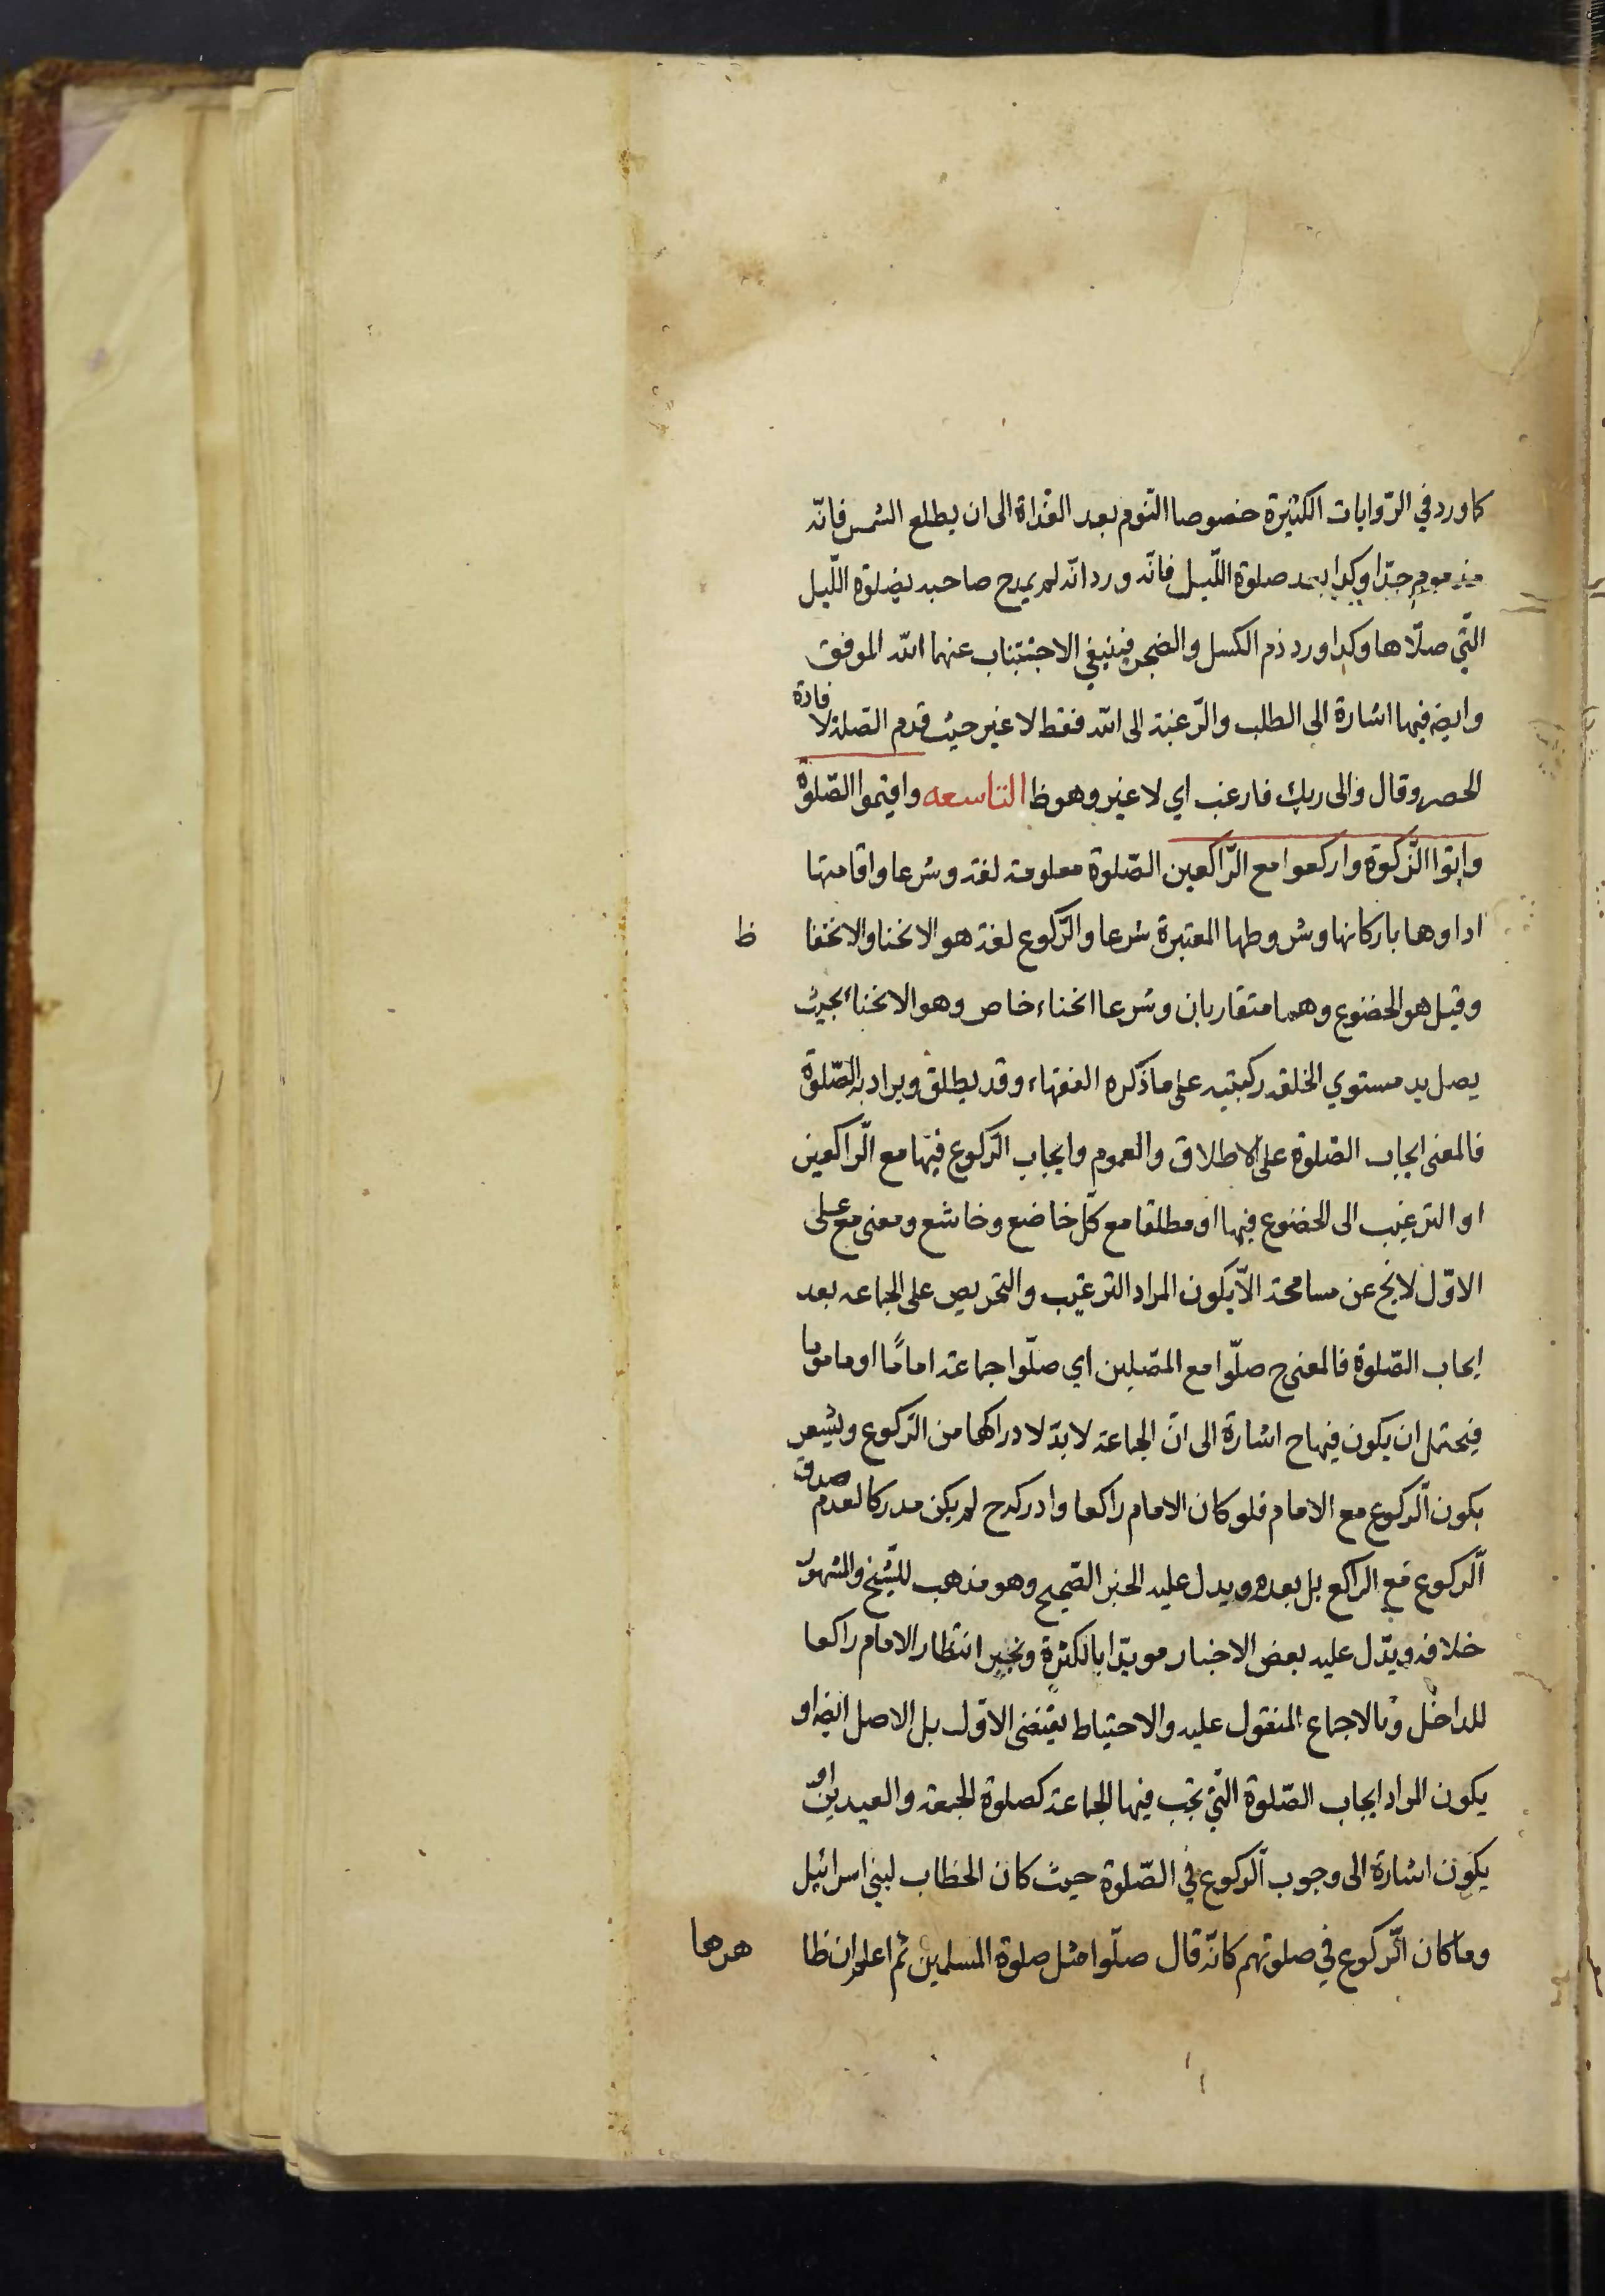 كما ورد في الرّوايات الكثيرة خصوصا النّوم بعد الغداة الى ان يطلع الشمس فانّه
مذموم جدّا وكذا بعد صلوة اللّيل فانّه ورد انّه لم يمدح صاحبه بصلوة اللّيل
الّتي صلّاها وكذا ورد ذم الكسل والضجر فينبغي الاجتناب عنهما الله الموفق
وايضا فيها اشارة الى الطلب والرّغبة الى الله فقط لا غير حيث قدم الصلة لافادة
الحصر وقال والى ربك فارغب اي لا غير وهو ظ التاسعه واقيموا الصّلوة
واتوا الزّكوة واركعوا مع الرّاكعين الصّلوة معلومة لغة وشرعا واقامتها
اداوها باركانها وشروطها المعتبرة شرعا والرّكوع لغة هو الانحنا والانخفا ظ
وقيل هو الخضوع وهما متقاربان وشرعا انحناء خاص وهو الانحناء بحيث
يصل يد مستوي الخلقه ركبتيه على ما ذكره الفقهاء وقد يطلق ويراد به الصّلوة
فالمعنى ايجاب الصّلوة على الاطلاق والعموم وايجاب الرّكوع فيها مع الرّاكعين
او الترغيب الى الخضوع فيها او مطلقا مع كلّ خاضع وخاشع ومعنى مع على
الاوّل لا يخ عن مسامحة الّا يكون المراد الترغيب والتحريص على الجماعه بعد
ايجاب الصّلوة فالمعنى ح صلّوا مع المصلين اي صلّوا جماعة امامًا او ماموما
فيحتمل ان يكون فيها ح اشارة الى انّ الجماعة لا بدّ لادراكها من الرّكوع ويشعر
بكون الرّكوع مع الامام فلو كان الامام راكعا وادركه ح لم يكن مدركا لعدم صدق
الرّكوع مع الراكع بل بعده ويدل عليه الخبر الصّحيح وهو مذهب للشّيخ والمشهور
خلافه ويدّل عليه بعض الاخبار مويدا بالكثرة وبخبر انتظار الامام راكعا
للداخل وبالاجماع المنقول عليه والاحتياط يقتضى الاوّل بل الاصل ايضا او
يكون المراد ايجاب الصّلوة الّتي تجب فيها الجماعة كصلوة الجمعة والعيدين او
يكون اشارة الى وجوب الرّكوع في الصّلوة حيث كان الخطاب لبني اسرائيل
وما كان الرّكوع في صلوتهم كانّه قال صلّوا مثل صلوة المسلمين ثم اعلم ان ظا هرها